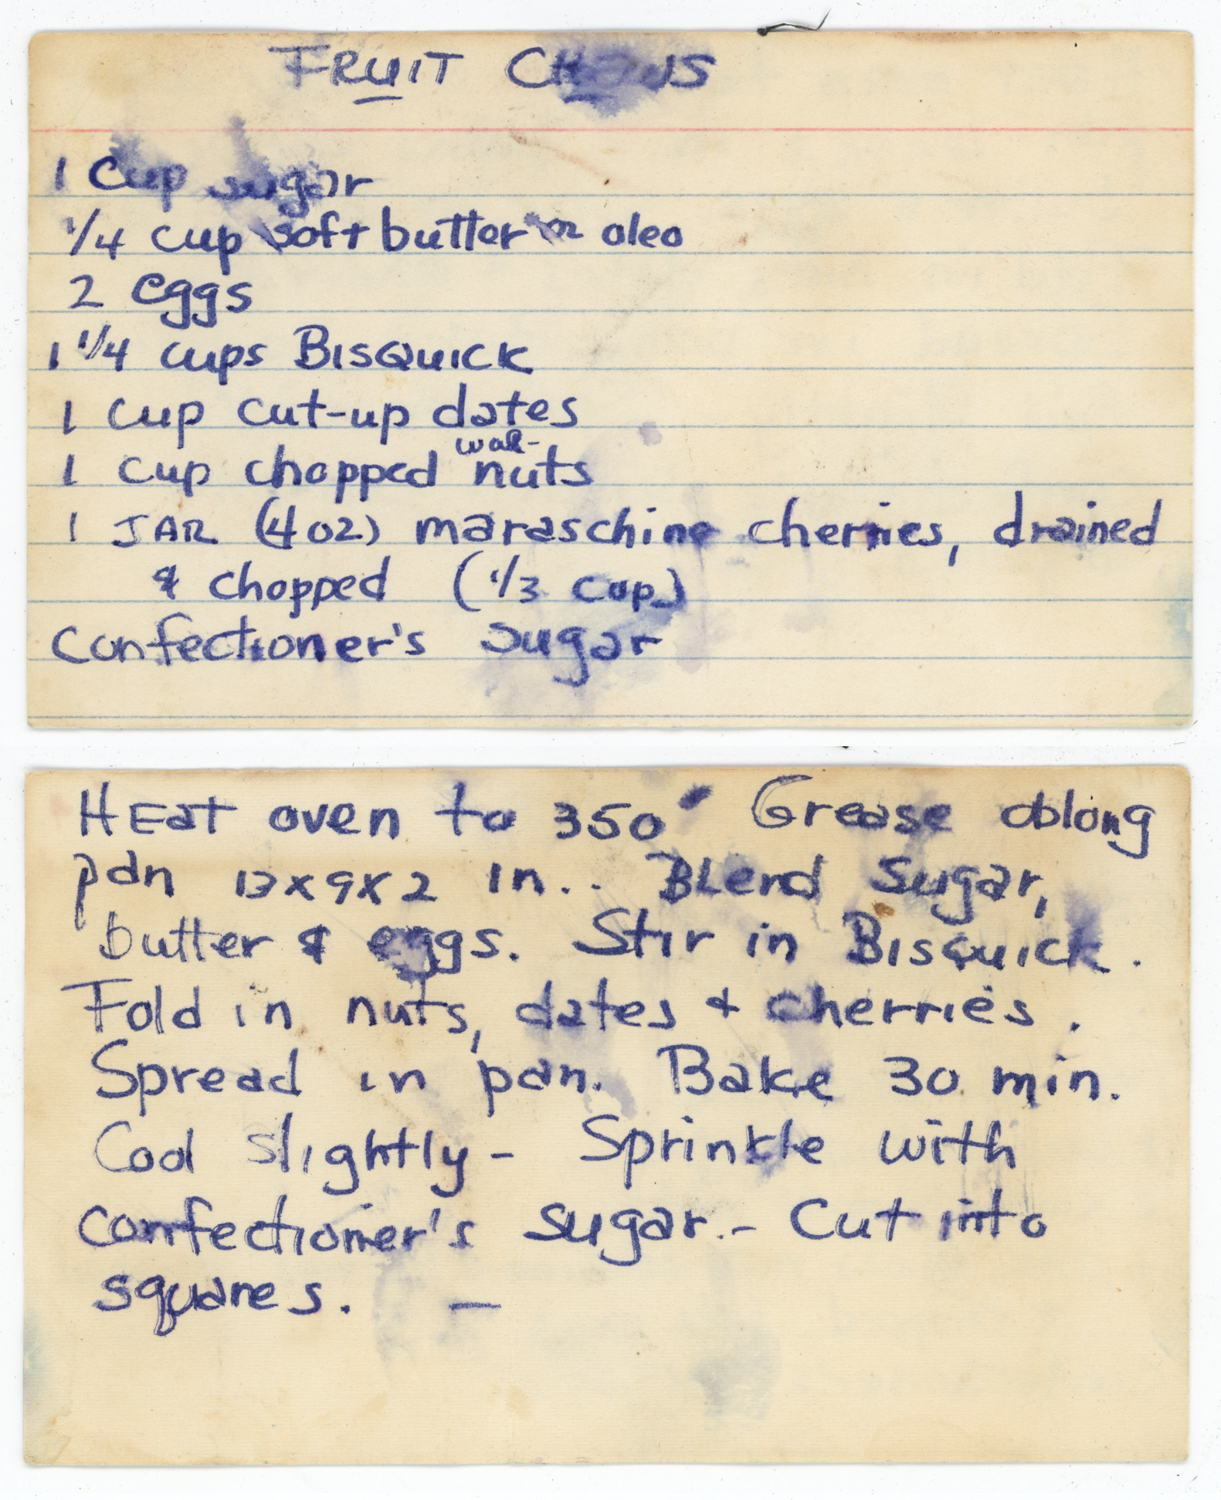 FRUIT CHEWS
1 Cup sugar
1/4 cup soft butter or oleo
2 eggs
1 1/4 cups BISQUICK
1 cup cut-up dates
wal-
1 cup chopped nuts
1 JAR (4 oz) maraschino cherries, drained
& chopped (1/3 cup)
Confectioner's sugar
HEat oven to 350° Grease oblong
pan 13x9x2 in.. Blend sugar,
butter & eggs. Stir in Bisquick.
Fold in nuts, dates + cherries.
Spread in pan. Bake 30 min.
Cool slightly - Sprinkle with
confectioner's sugar. - Cut into
squares. —